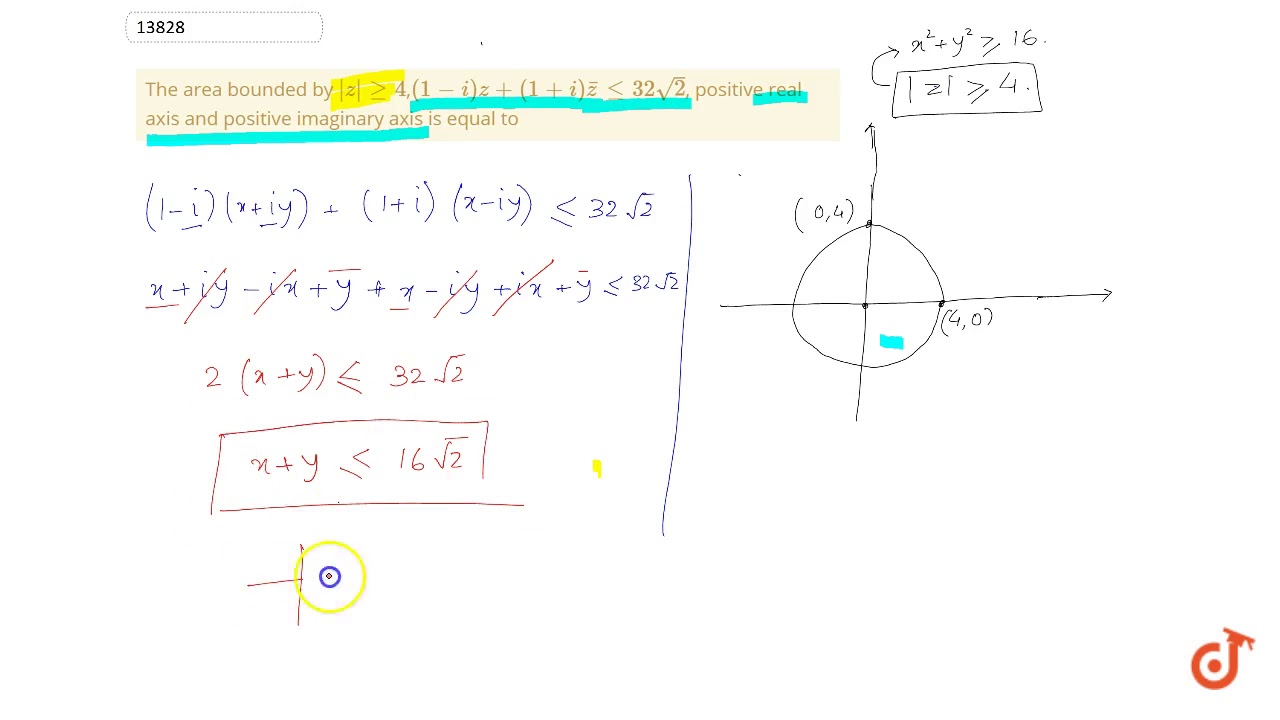 13828
The area bounded by |z| ≥ 4, (1 − i)z + (1 + i)z̄ ≤ 32√2, positive real
axis and positive imaginary axis is equal to
x² + y² ≥ 16.
|z| ≥ 4.
(1-i) (x+iy) + (1+i) (x-iy) ≤ 32√2
x + iy - ix + y + x - iy + ix + y ≤ 32√2
2 (x+y) ≤ 32√2
x+y ≤ 16√2
(0,4)
(4,0)